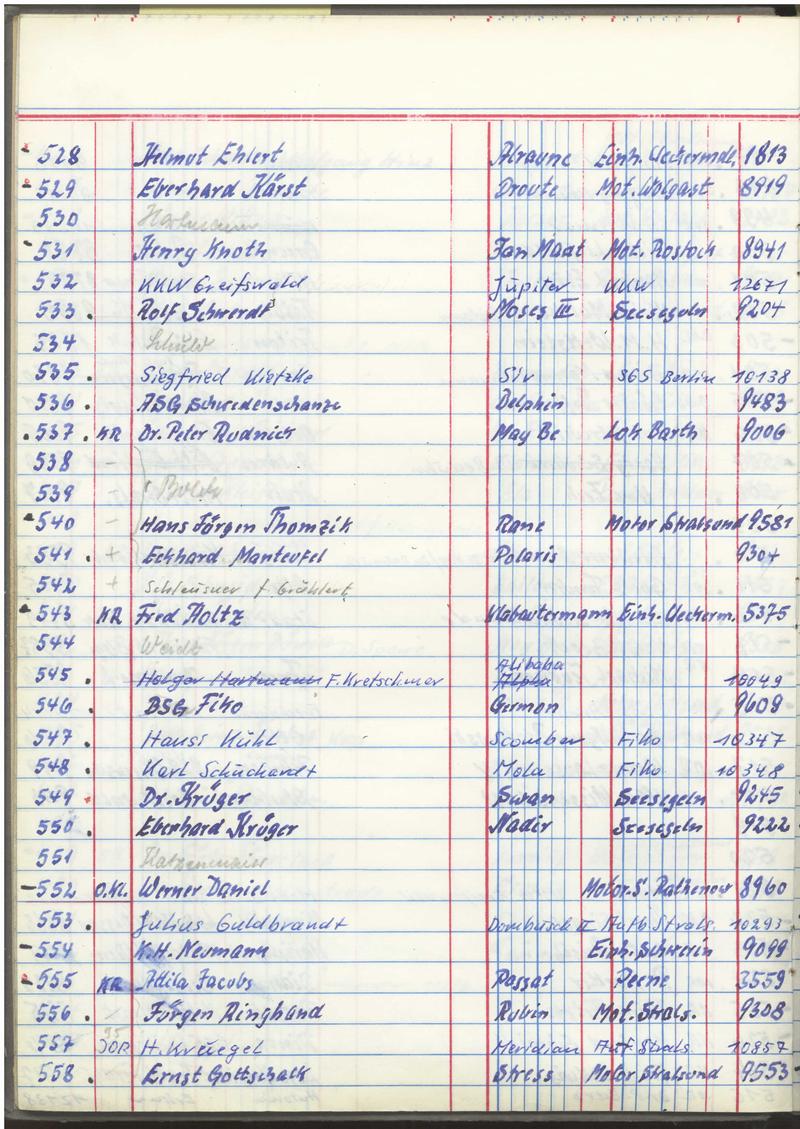 528 Helmut Ehlert Alraune Einh.Ueckermde. 1813
529 Eberhard Karst Droute Mot. Wolgast 8919
530 Hartmann
531 Henry Knoth Jan Maat Mot. Rostock 8941
532 KKW Greifswald Jupiter KKW 12671
533 . Rolf Schwerdt Moses III Seesegeln 9204
534
535 . Siegfried Kietzke Siv SGS Berlin 10138
536 . ASG Schwedenschanze Delphin 9483
. 537 . KR Dr. Peter Rudnick May Be Lok Barth 9006
538 -
539 -
540 - Hans Jürgen Thomzik Rane Motor Stralsund 9581
541 . + Eckhard Manteufel Polaris 9304
542 + Schleusner f. Grählert
543 KR Fred Holtz Klabautermann Einh. Ueckerm. 5375
544 Weidt
Alibaba
545 . Holger Hartmann F. Kretschmer Alpha 10049
546 . BSG Fiko Germon 9609
547 . Hansi Kühl Scomber Fiko 10347
548 . Karl Schuchardt Mola Fiko 10348
549 Dr. Krüger Swan Seesegeln 9245
550 . Eberhard Krüger Nadir Seesegeln 9222
551
- 552 O.Kl. Werner Daniel Motor S. Rathenow 8960
553 . Julius Guldbrandt Dornbusch II Aufb. Strals. 10293
- 554 K.H. Neumann Einh. Schwerin 9099
- 555 KR Attila Jacobs Passat Peene 3559
556 . Jürgen Ringhand Rubin Mot. Strals. 9308
95
557 JOR H. Kreuegel Meridian Auf. Strals 10857
558 . Ernst Gottschalk Stress Motor Stralsund 9553